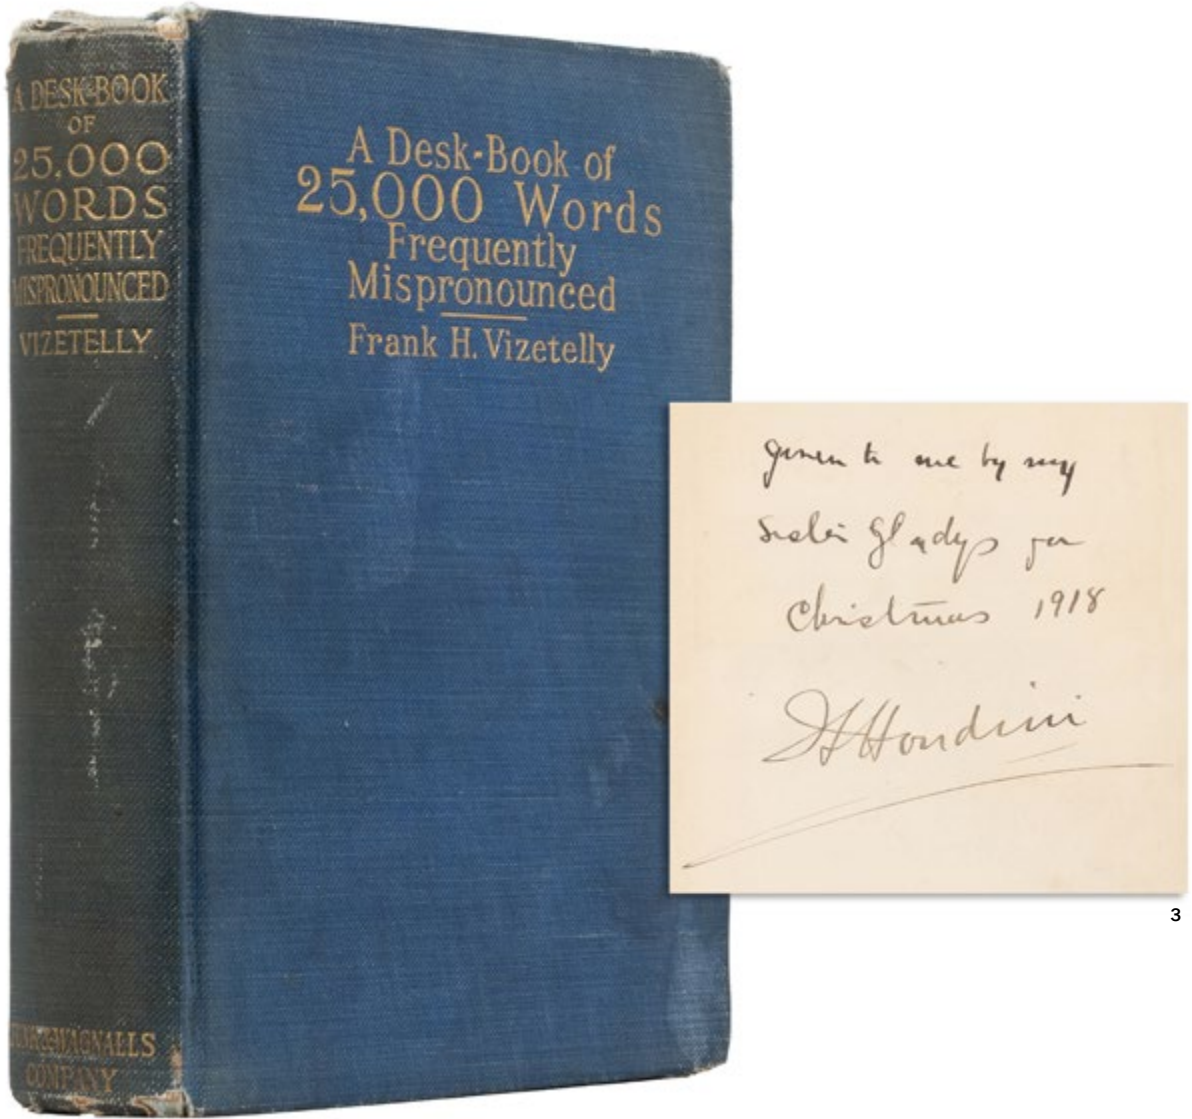 A DESK-BOOK
OF
25,000
WORDS
FREQUENTLY
MISPRONOUNCED
VIZETELLY
FUNK & WAGNALLS
COMPANY
A Desk-Book of
25,000 Words
Frequently
Mispronounced
Frank H. Vizetelly
given to me by my
sister Gladys for
Christmas 1918
H Houdini
3